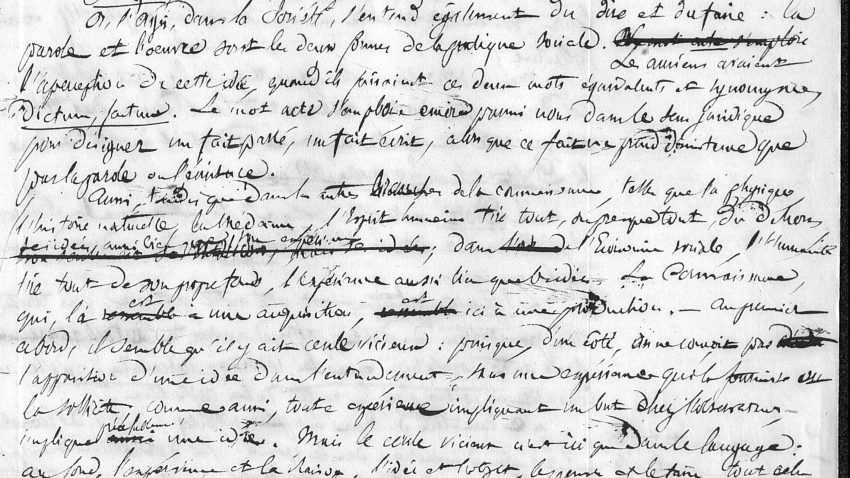 Or, l'agir, dans la Société, s'entend également du dire et du faire : la
parole et l'œuvre sont les deux formes de la pratique sociale.
Les anciens avaient
l'aperception de cette idée, quand ils faisaient ces deux mots équivalents et synonymes,
dictum, factum. Le mot acte s'emploie encore parmi nous dans le sens juridique
pour désigner un fait passé, un fait écrit, alors que ce fait ne prend d'existence que
par la parole ou l'écriture.
Aussi, tandis que dans les autres branches de la connaissance, telle que la physique,
l'histoire naturelle, la médecine, l'Esprit humain tire tout, ou presque tout, du dehors,
ses idées, aussi bien que son expérience
; dans de l'Economie sociale, l'Humanité
tire tout de son propre fonds, l'expérience aussi bien que l'idée. La Connaissance,
qui, là est une acquisition, est ici une production. — Au premier
abord, il semble qu'il y ait cercle vicieux : puisque, d'un côté, on ne conçoit pas
l'apparition d'une idée dans l'entendement, sans une expérience qui la fournisse ou
la sollicite, comme aussi, toute expérience impliquant un but chez l'observateur,
implique une idée. Mais le cercle vicieux n'est ici que dans le langage :
au fond, l'expérience et la raison, l'idée et l'objet, le penser et le faire, tout cela